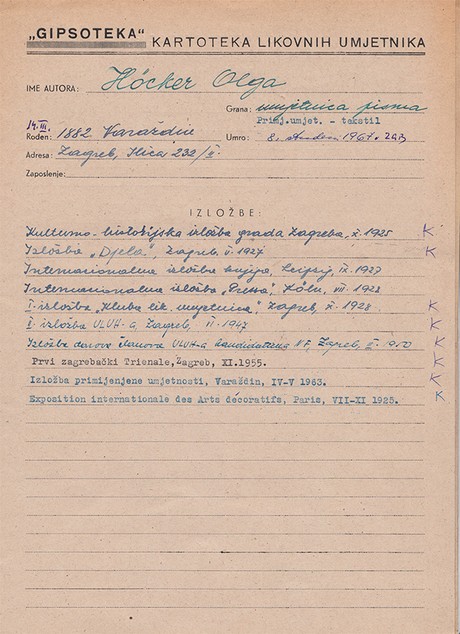 „GIPSOTEKA“ KARTOTEKA LIKOVNIH UMJETNIKA
IME AUTORA: Höcker Olga
Grana: umjetnica pisma
Primj.umjet. - tekstil
Rođen: 14. III. 1882 Varaždin Umro: 8. studeni 1967. ZGB
Adresa: Zagreb, Ilica 232/II.
Zaposlenje:
IZLOŽBE:
Kulturno-historijska izložba grada Zagreba, X. 1925 K
Izložba „Djela“, Zagreb V. 1927 K
Internacionalna izložba knjiga, Leipzig, IX. 1927
Internacionalna izložba „Pressa“, Köln, VIII. 1928
I. izložba „Kluba lik. umjetnica“, Zagreb, X. 1928 K
I. izložba ULUH-a, Zagreb, II. 1947 K
Izložba danova članova ULUH-a kandidatima NF, Zagreb, II. 1950 K
Prvi zagrebački Trienale, Zagreb, XI.1955. K
Izložba primijenjene umjetnosti, Varaždin, IV-V 1963. K
Exposition internationale des Arts décoratifs, Paris, VII-XI 1925. K